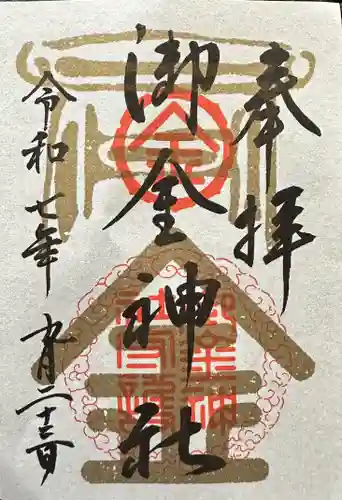 奉拝
御金神社
令和七年九月二十三日
金